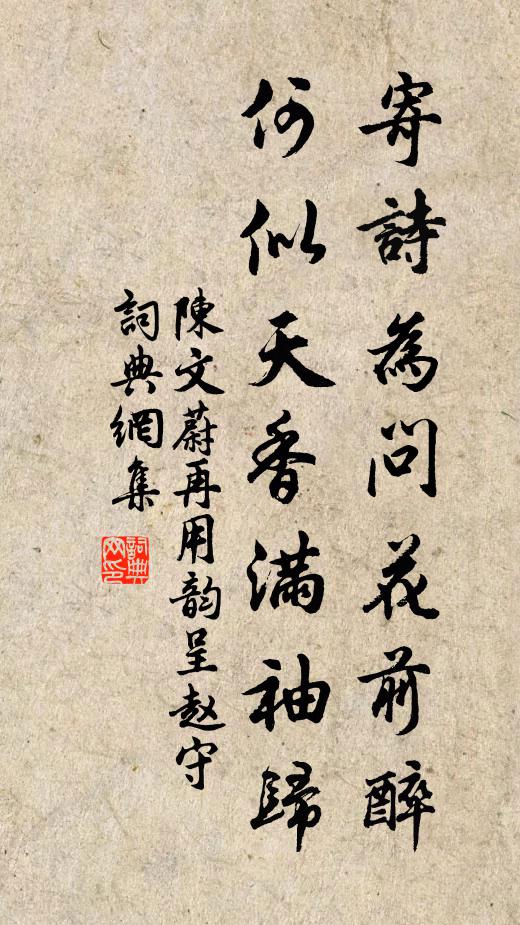 寄詩為問花前醉
何似天香滿袖歸
陳文蔚再用韵呈赵守
詞典網集
詞典网印